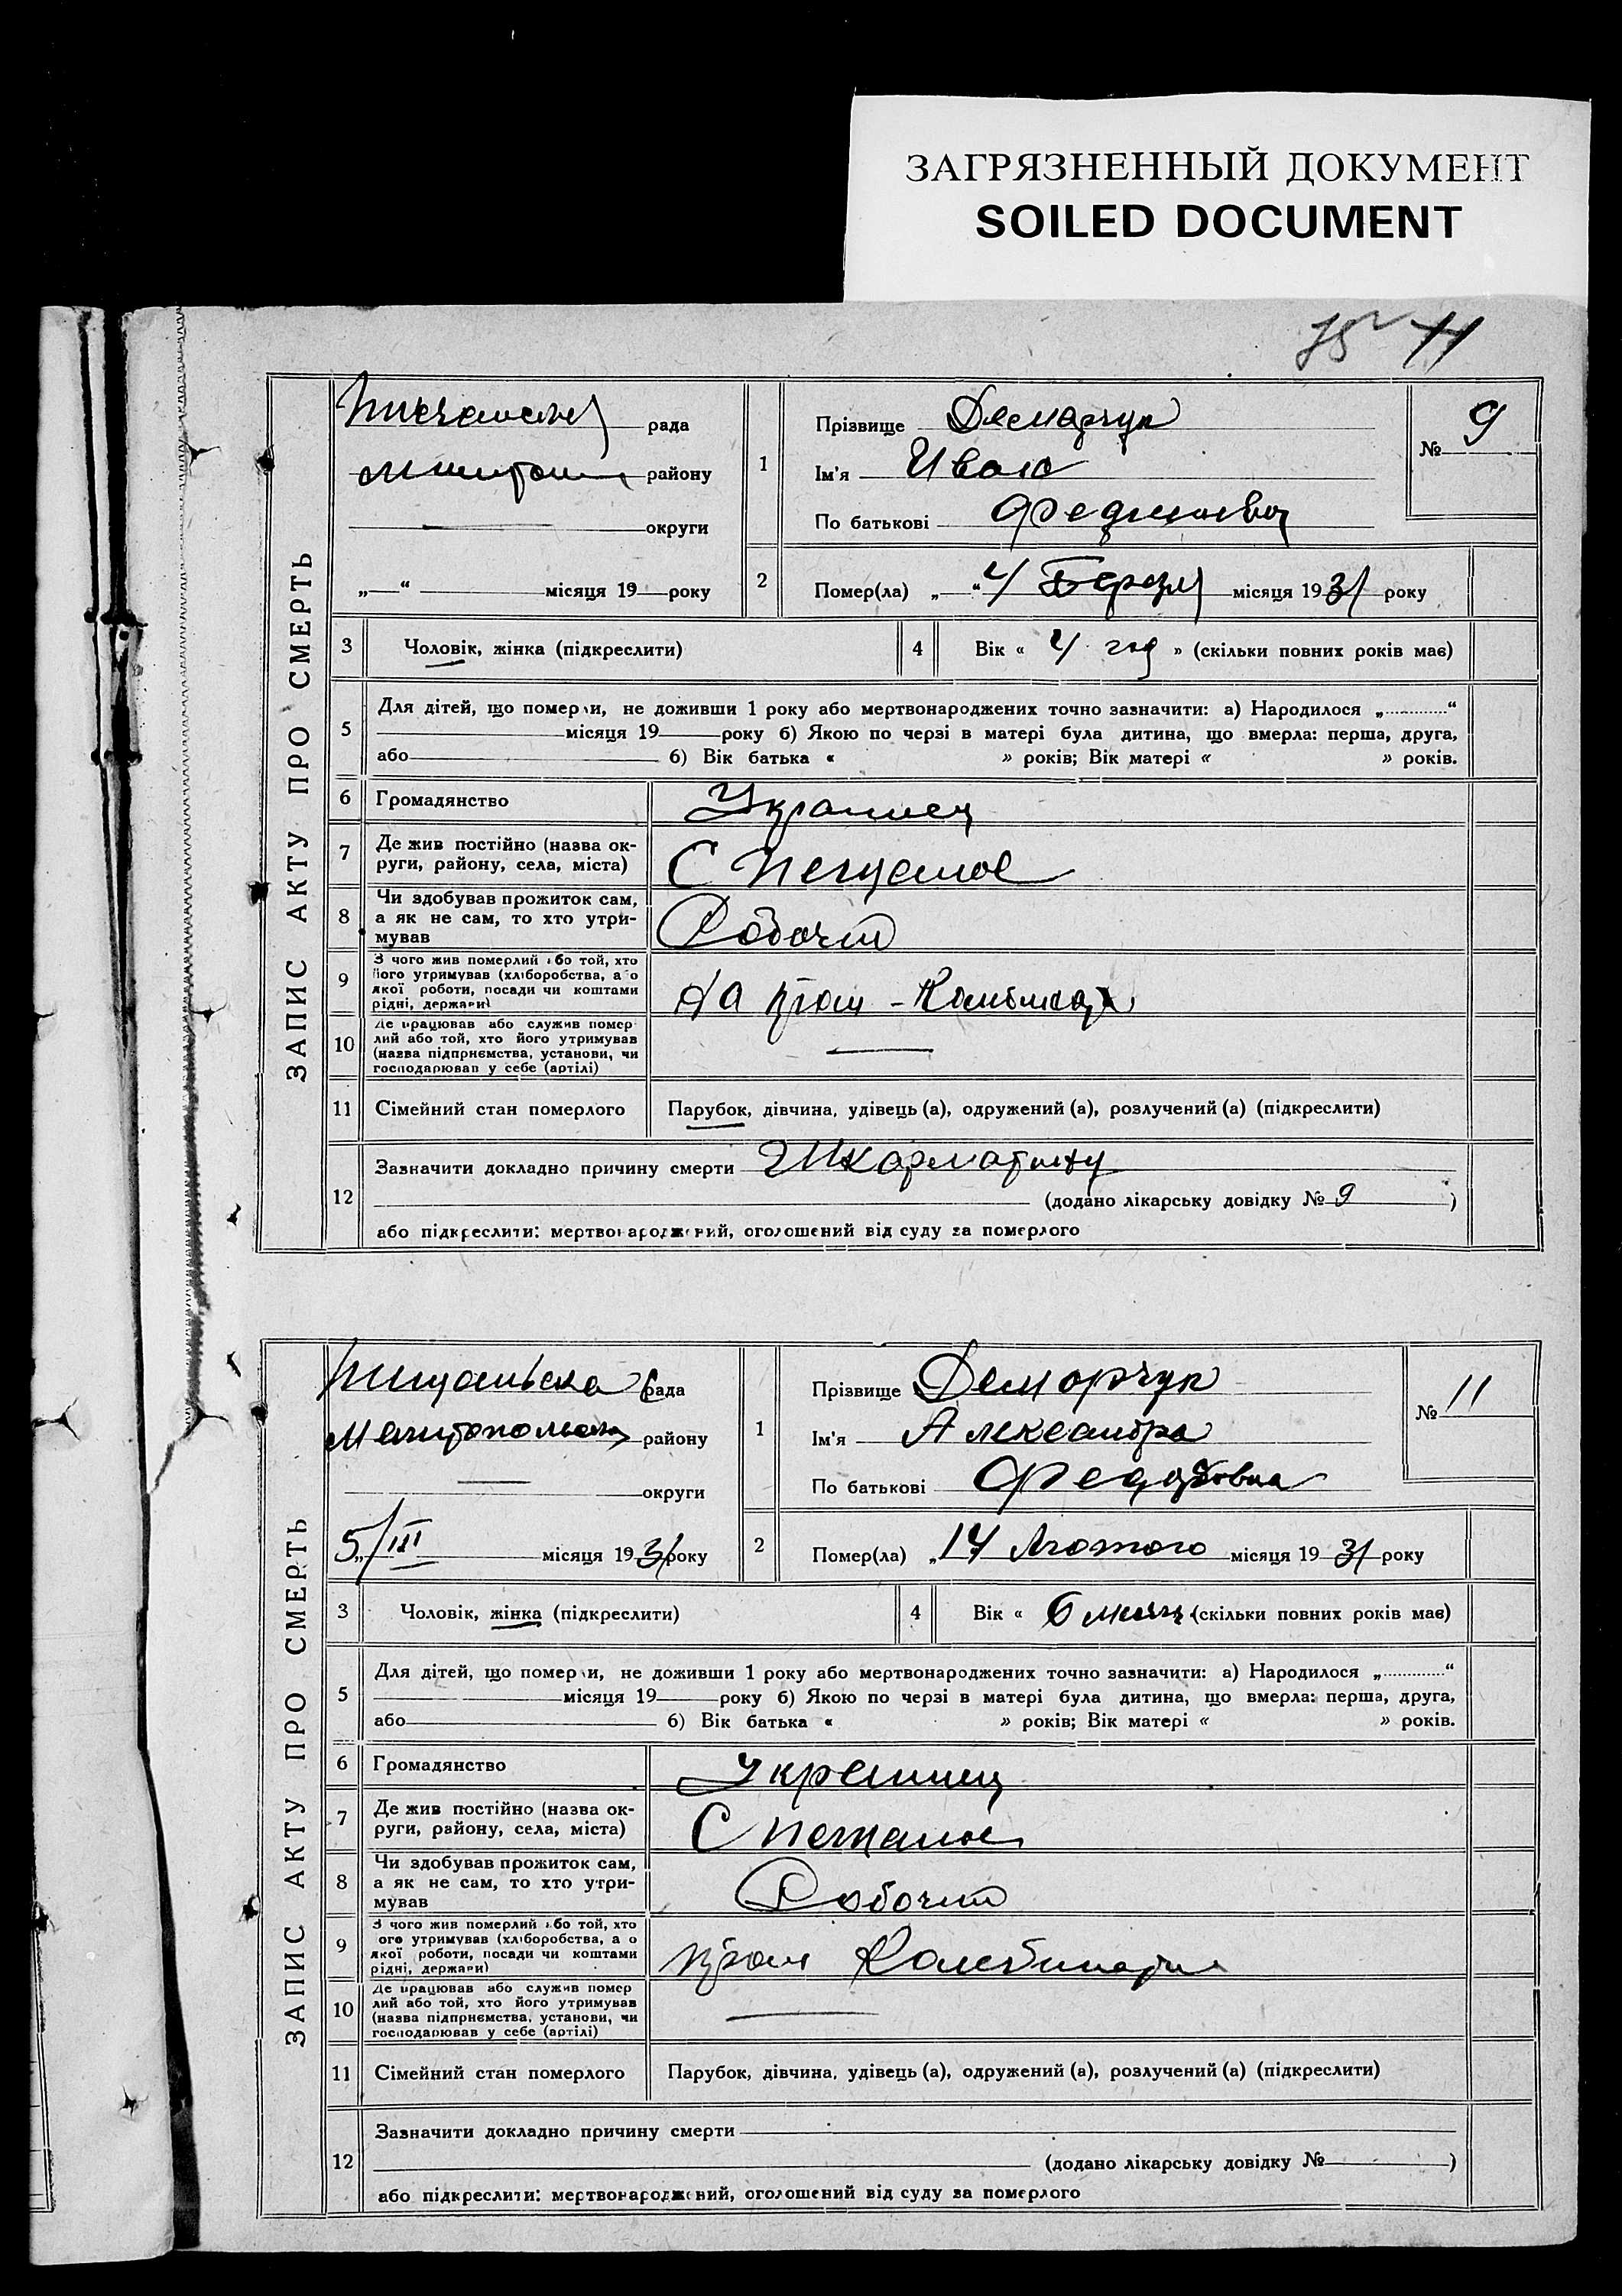 ЗАГРЯЗНЕННЫЙ ДОКУМЕНТ
SOILED DOCUMENT
75 11
ЗАПИС АКТУ ПРО СМЕРТЬ
рада
району
округи
„ “ місяця 19 року
1
Прізвище Демарчук
Ім'я Иван
По батькові
№ 9
2
Помер(ла) „ “ 4/ Березн місяця 1931 року
3
Чоловік, жінка (підкреслити)
4
Вік « 4 год » (скільки повних років має)
5
Для дітей, що померли, не доживши 1 року або мертвонароджених точно зазначити: а) Народилося „ “
місяця 19 року б) Якою по черзі в матері була дитина, що вмерла: перша, друга,
або б) Вік батька « » років; Вік матері « » років.
6
Громадянство
Украинец
7
Де жив постійно (назва ок-
руги, району, села, міста)
С Песчаное
8
Чи здобував прожиток сам,
а як не сам, то хто утри-
мував
Робочий
9
З чого жив померлий або той, хто
його утримував (хліборобства, а бо
якої роботи, посади чи коштами
рідні, держави)
На
10
Де працював або служив помер
лий або той, хто його утримував
(назва підприємства, установи, чи
господарював у себе (артілі)
11
Сімейний стан померлого
Парубок, дівчина, удівець (а), одружений (а), розлучений (а) (підкреслити)
12
Зазначити докладно причину смерти Шкарлатину
(додано лікарську довідку № 9 )
або підкреслити: мертвонароджений, оголошений від суду за померлого
ЗАПИС АКТУ ПРО СМЕРТЬ
Пищанська рада
Мелитопольск району
округи
5/III місяця 1931 року
1
Прізвище Демарчук
Ім'я Александра
По батькові Федоровна
№ 11
2
Помер(ла) „14 Лютого місяця 1931 року
3
Чоловік, жінка (підкреслити)
4
Вік « 6 месяц (скільки повних років має)
5
Для дітей, що померли, не доживши 1 року або мертвонароджених точно зазначити: а) Народилося „ “
місяця 19 року б) Якою по черзі в матері була дитина, що вмерла: перша, друга,
або б) Вік батька « » років; Вік матері « » років.
6
Громадянство
Украинец
7
Де жив постійно (назва ок-
руги, району, села, міста)
С Песчаное
8
Чи здобував прожиток сам,
а як не сам, то хто утри-
мував
Робочий
9
З чого жив померлий або той, хто
ого утримував (хліборобства, а о
якої роботи, посади чи коштами
рідні, держави)
10
Де працював або служив помер
лий або той, хто його утримував
(назва підприємства, установи, чи
господарював у себе (артілі)
11
Сімейний стан померлого
Парубок, дівчина, удівець (а), одружений (а), розлучений (а) (підкреслити)
12
Зазначити докладно причину смерти
(додано лікарську довідку № )
або підкреслити: мертвонароджений, оголошений від суду за померлого